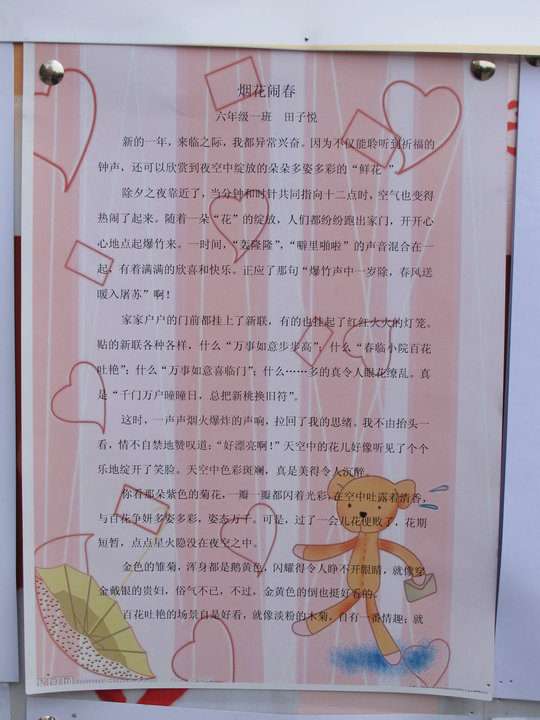 烟花闹春
六年级一班 田子悦
新的一年，来临之际，我都异常兴奋。因为不仅能聆听到祈福的
钟声，还可以欣赏到夜空中绽放的朵朵多姿多彩的“鲜花”。
除夕之夜靠近了，当分钟和时针共同指向十二点时，空气也变得
热闹了起来。随着一朵“花”的绽放，人们都纷纷跑出家门，开开心
心地点起爆竹来。一时间，“轰隆隆”，“噼里啪啦”的声音混合在一
起，有着满满的欣喜和快乐。正应了那句“爆竹声中一岁除，春风送
暖入屠苏”啊！
家家户户的门前都挂上了新联，有的也挂起了红红火火的灯笼。
贴的新联各种各样，什么“万事如意步步高”；什么“春临小院百花
吐艳”；什么“万事如意喜临门”；什么……多的真令人眼花缭乱。真
是“千门万户曈曈日，总把新桃换旧符”。
这时，一声声烟火爆炸的声响，拉回了我的思绪。我不由抬头一
看，情不自禁地赞叹道：“好漂亮啊！”天空中的花儿好像听见了个个
乐地绽开了笑脸。天空中色彩斑斓，真是美得令人沉醉。
你看那朵紫色的菊花，一瓣一瓣都闪着光彩，在空中吐露着清香，
与百花争妍多姿多彩，姿态万千。可是，过了一会儿花便败了，花期
短暂，点点星火隐没在夜空之中。
金色的雏菊，浑身都是鹅黄色，闪耀得令人睁不开眼睛，就像穿
金戴银的贵妇，俗气不已，不过，金黄色的倒也挺好看的。
百花吐艳的场景自是好看，就像淡粉的木菊，自有一番情趣；就